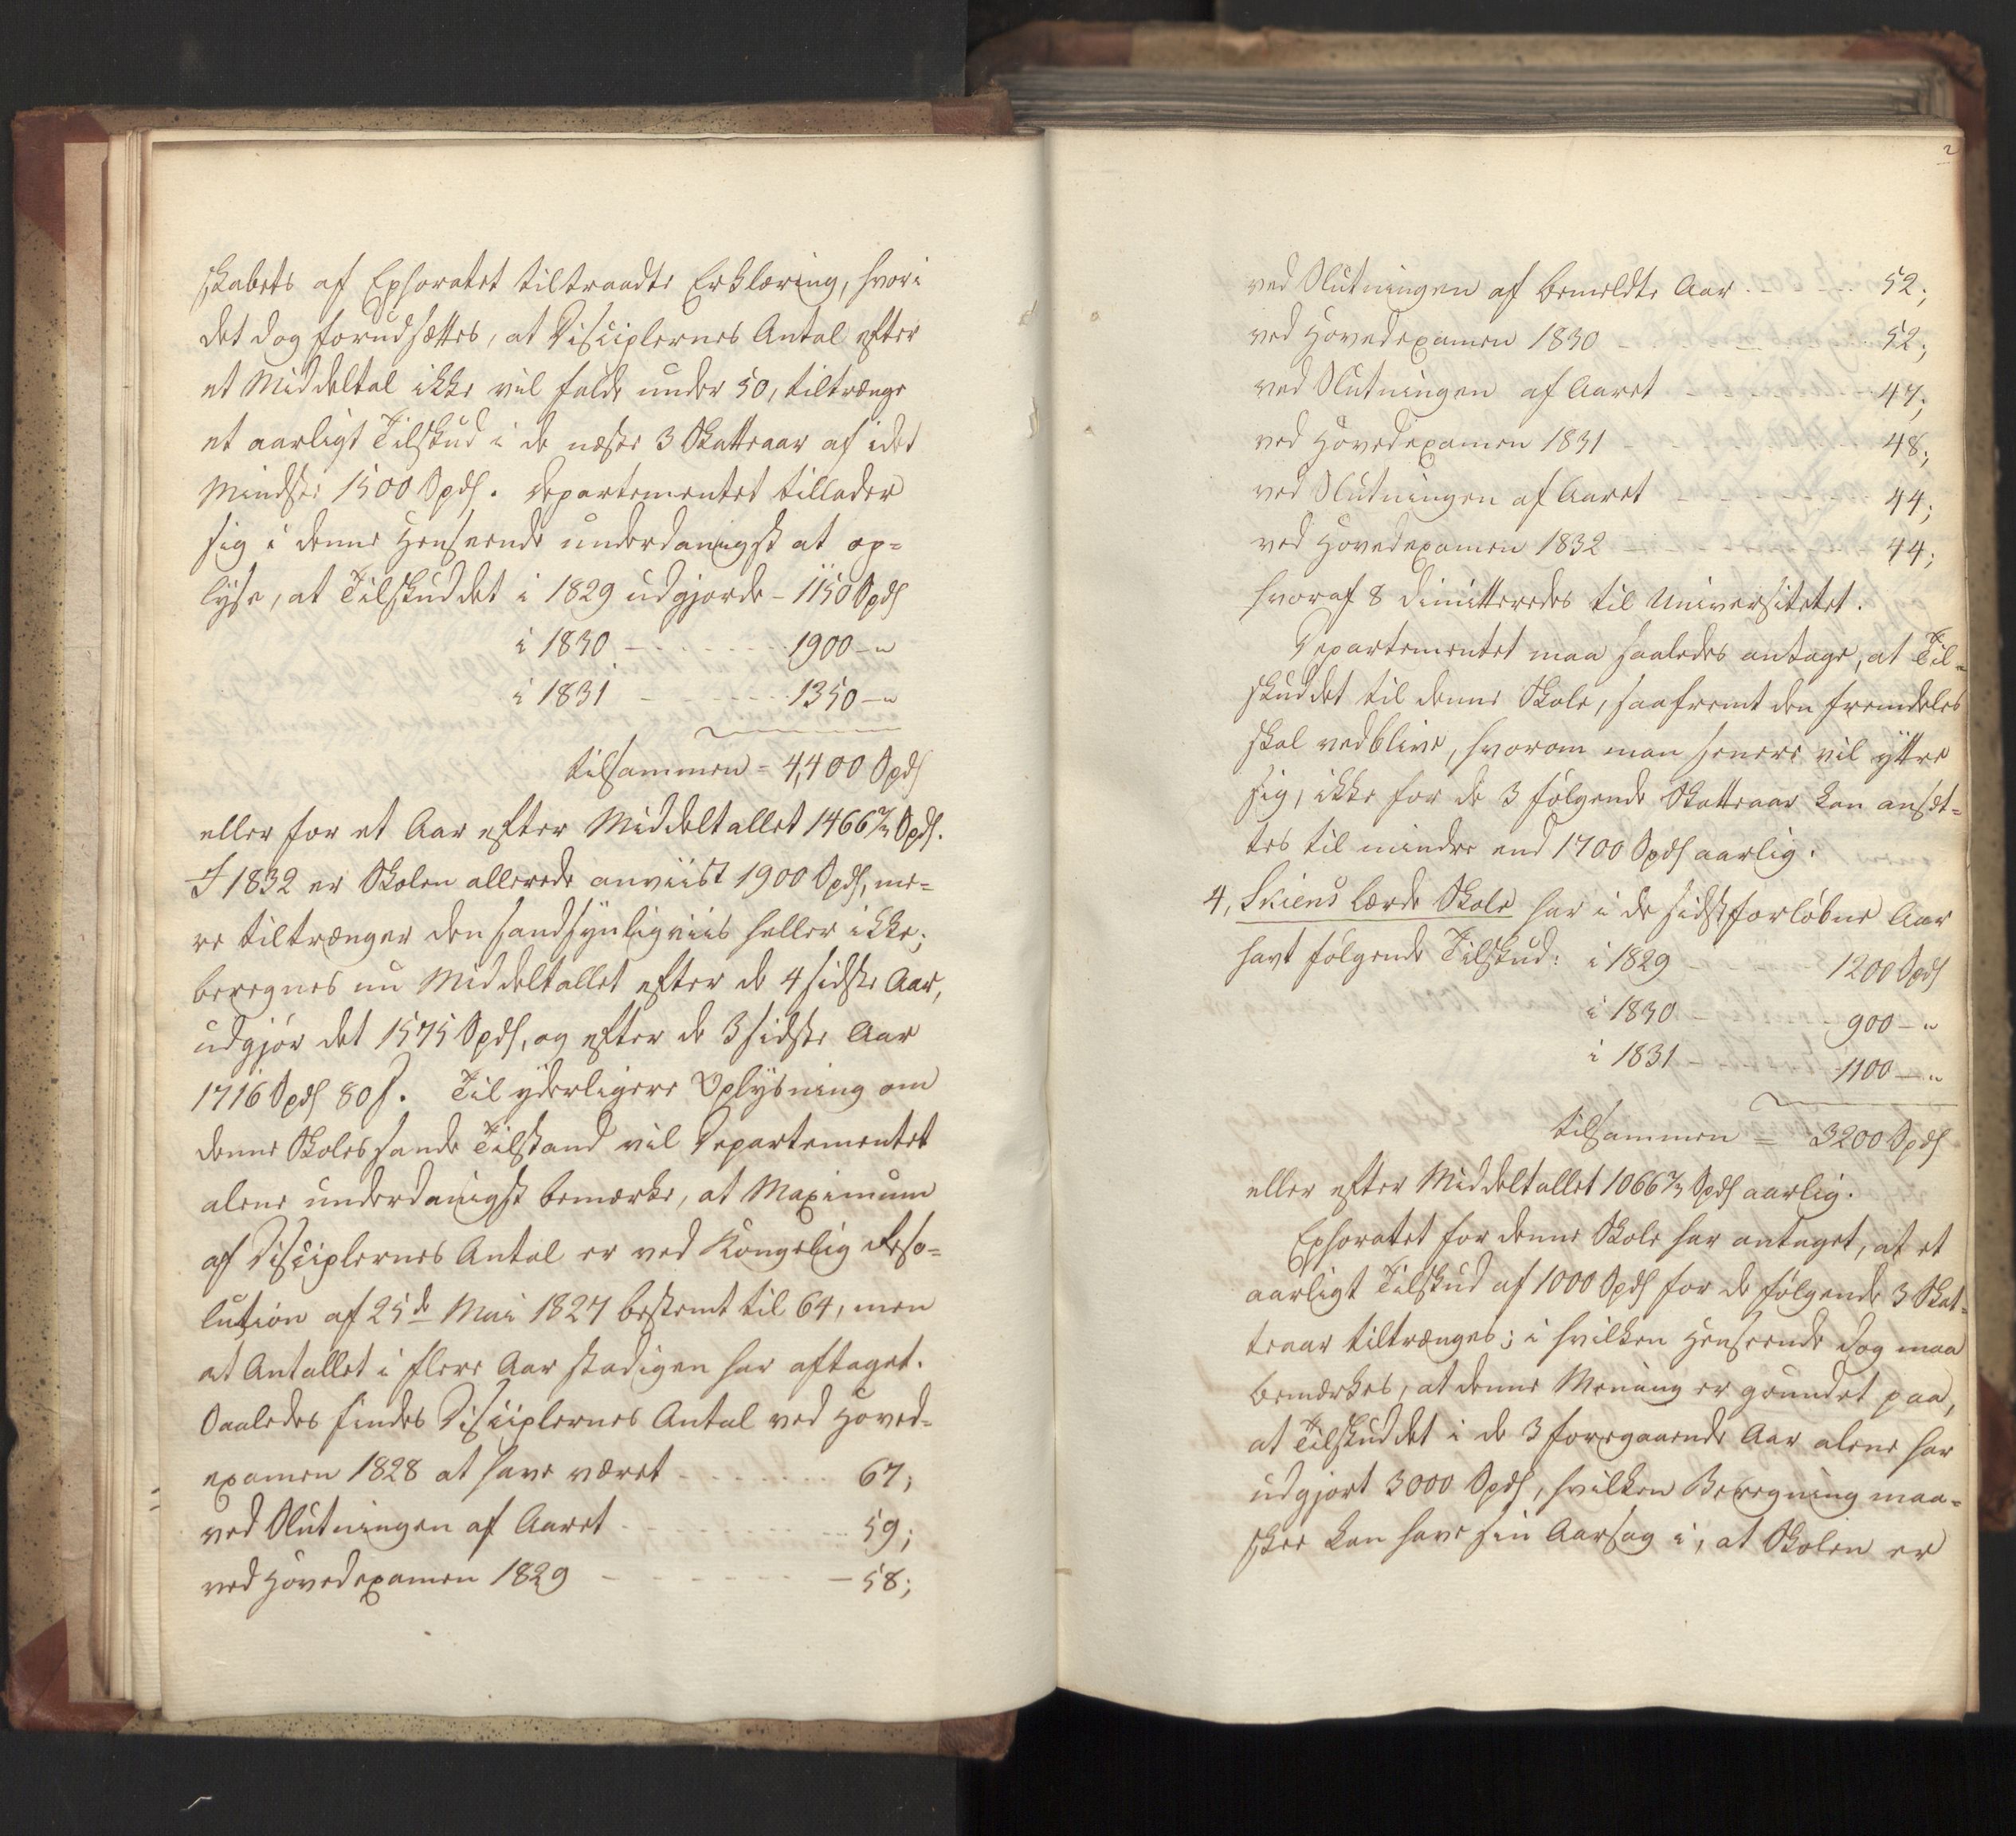 skabets af Ephoratet tiltraadte Erklæring, hvori
det dog forudsættes, at Disciplernes Antal efter
et Middeltal ikke vil falde under 50, tiltrænge
et aarligt Tilskud i de næste 3 Skatteaar af i det
Mindste 1500 Spds. Departementet tillader
sig i denne Henseende underdanigst at op-
lyse, at Tilskuddet i 1829 udgjorde - 1150 Spds
i 1830 - - - - - - 1900 - "
i 1831 - - - - - 1350 - "
tilsammen = 4,400 Spds
eller for et Aar efter Middeltallet 1466 2/3 Spds.
I 1832 er Skolen allerede anviist 1900 Spds, me-
re tiltrænger den sandsynligviis heller ikke;
beregnes nu Middeltallet efter de 4 sidste Aar,
udgjør det 1575 Spds, og efter de 3 sidste Aar
1716 Spds 80 s. Til yderligere Oplysning om
denne Skoles sande Tilstand vil Departementet
alene underdanigst bemærke, at Maximum
af Disciplernes Antal er ved Kongelig Reso-
lution af 25de Mai 1827 bestemt til 64, men
at Antallet i flere Aar stadigen har aftaget.
Saaledes findes Disciplernes Antal ved Hoved-
examen 1828 at have været - - - - - - 67;
ved Slutningen af Aaret - - - - - - - 59;
ved Hovedexamen 1829 - - - - - - - 58;
2
ved Slutningen af bemeldte Aar - - - 52;
ved Hovedexamen 1830 - - - - - 52;
ved Slutningen af Aaret - - - - - 47;
ved Hovedexamen 1831 - - - - - 48;
ved Slutningen af Aaret - - - - - 44;
ved Hovedexamen 1832 - - - - - 44;
hvoraf 8 dimitteredes til Universitetet.
Departementet maa saaledes antage, at Til-
skuddet til denne Skole, saafremt den fremdeles
skal vedblive, hvorom man senere vil yttre
sig, ikke for de 3 følgende Skatteaar kan ansæt-
tes til mindre end 1700 Spds aarlig.
4, Skiens lærde Skole har i de sidstforløbne Aar
havt følgende Tilskud: i 1829 - 1200 Spds
i 1830 - - 900 - "
i 1831 - - 1100 - "
tilsammen = 3200 Spds
eller efter Middeltallet 1066 2/3 Spds aarlig.
Ephoratet for denne Skole har antaget, at et
aarligt Tilskud af 1000 Spds for de følgende 3 Skat-
teaar tiltrænges; i hvilken Henseende dog maa
bemærkes, at denne Mening er grundet paa,
at Tilskuddet i de 3 foregaaende Aar alene har
udgjort 3000 Spds, hvilken Beregning maa-
skee kan have sin Aarsag i, at Skolen er